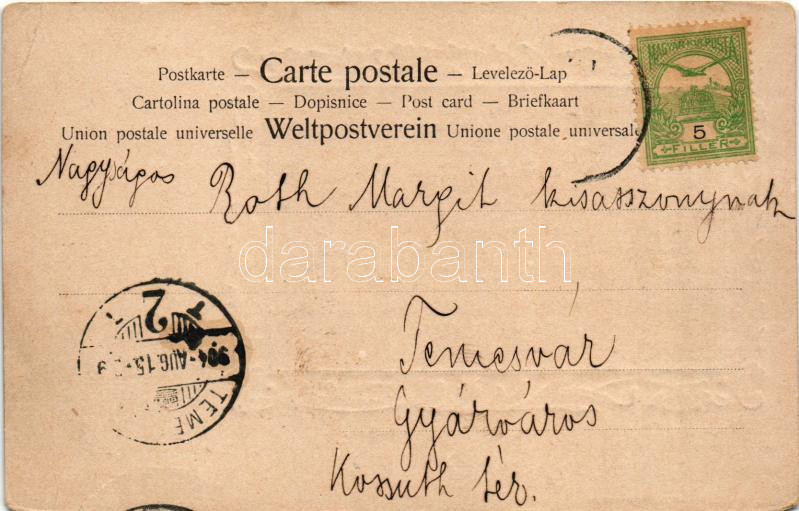 Postkarte — Carte postale — Levelező-Lap
Cartolina postale — Dopisnice — Post card — Briefkaart
Union postale universelle Weltpostverein Unione postale universale
MAGYAR KIR. POSTA
5
FILLÉR
Nagyságos Roth Margit kisasszonynak
darabanth
Temesvár
Gyárváros
Kossuth tér.
2
904 AUG. 15
TEME